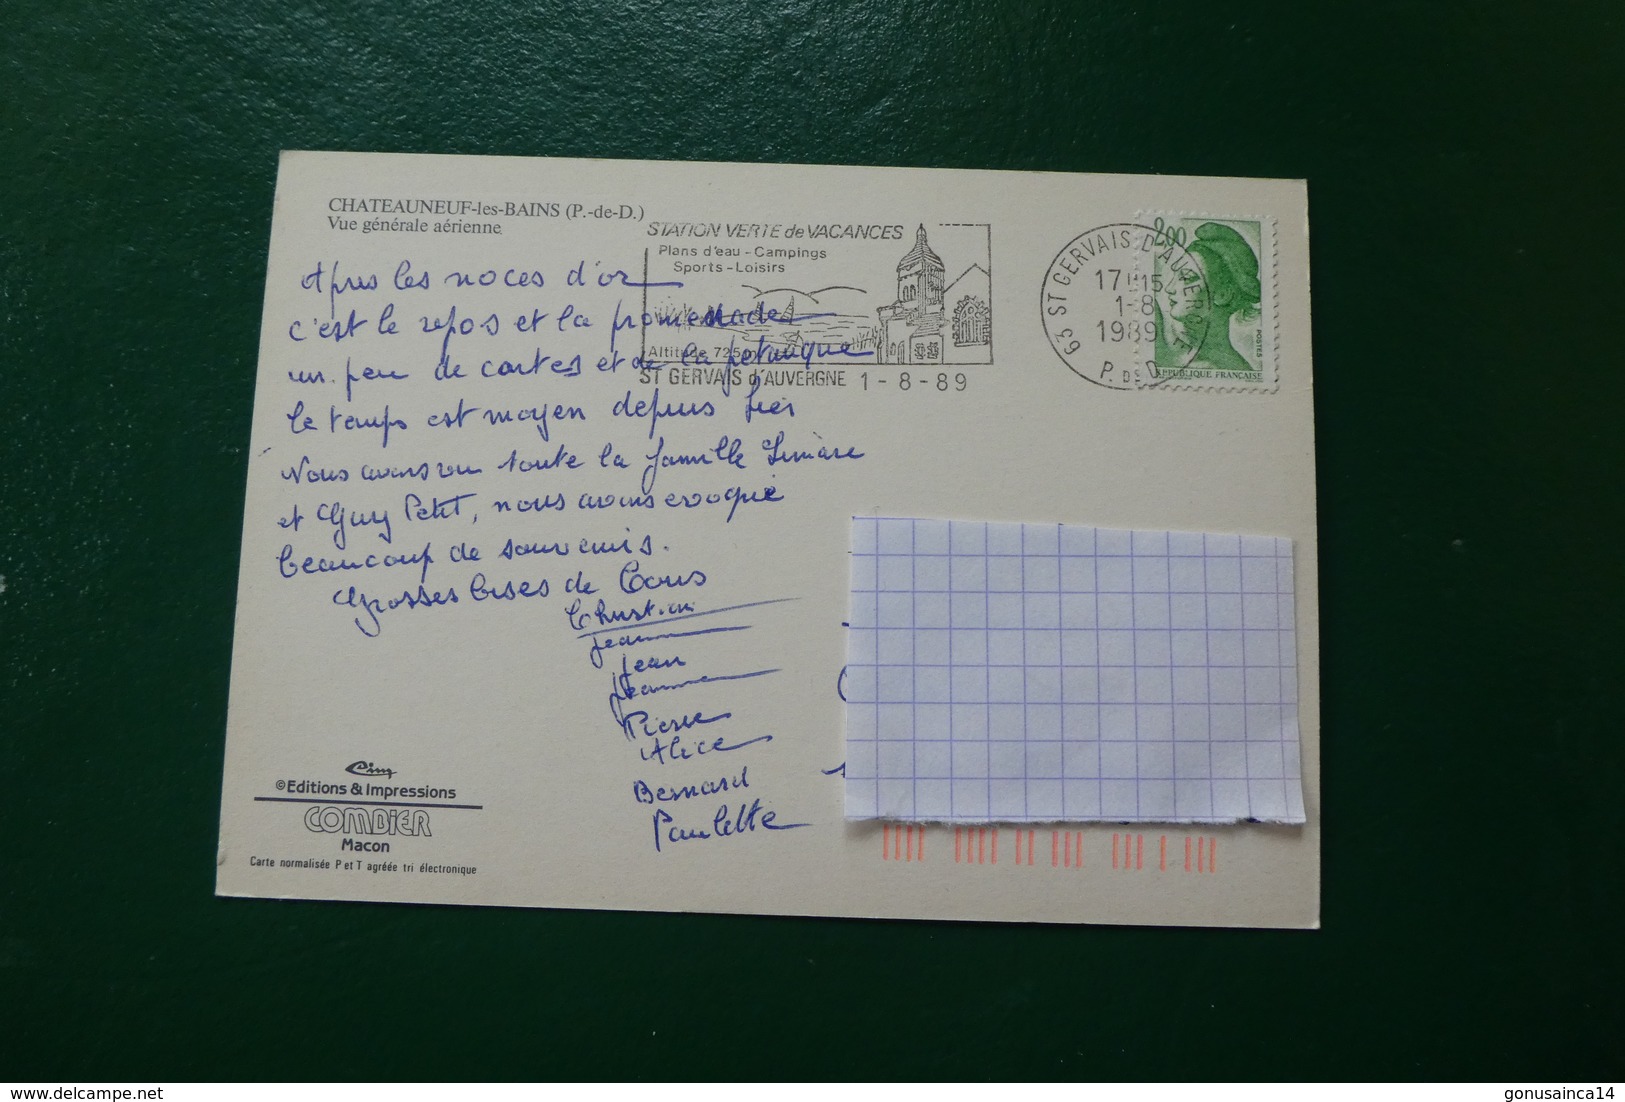 CHATEAUNEUF-les-BAINS (P.-de-D.)
Vue générale aérienne
STATION VERTE de VACANCES
Plans d'eau - Campings
Sports - Loisirs
Altitude 725m
ST GERVAIS d'AUVERGNE 1-8-89
63 ST GERVAIS D'AUVERGNE
17H15
1-8
1989
P. DE D.
2,00
POSTES
REPUBLIQUE FRANÇAISE
Apres les noces d'or
c'est le repos et la promenade
un peu de cartes et de la pétanque
le temps est moyen depuis hier
Nous avons vu toute la famille
et Guy Petit, nous avons evoqué
beaucoup de souvenirs.
Grosses bises de Tous
Christian
Jeanne
Jean
Jeanne
Pierre
Alice
Bernard
Paulette
Cim
©Editions & Impressions
COMBIER
Macon
Carte normalisée P et T agréée tri électronique
delcampe.net
gonusainca14